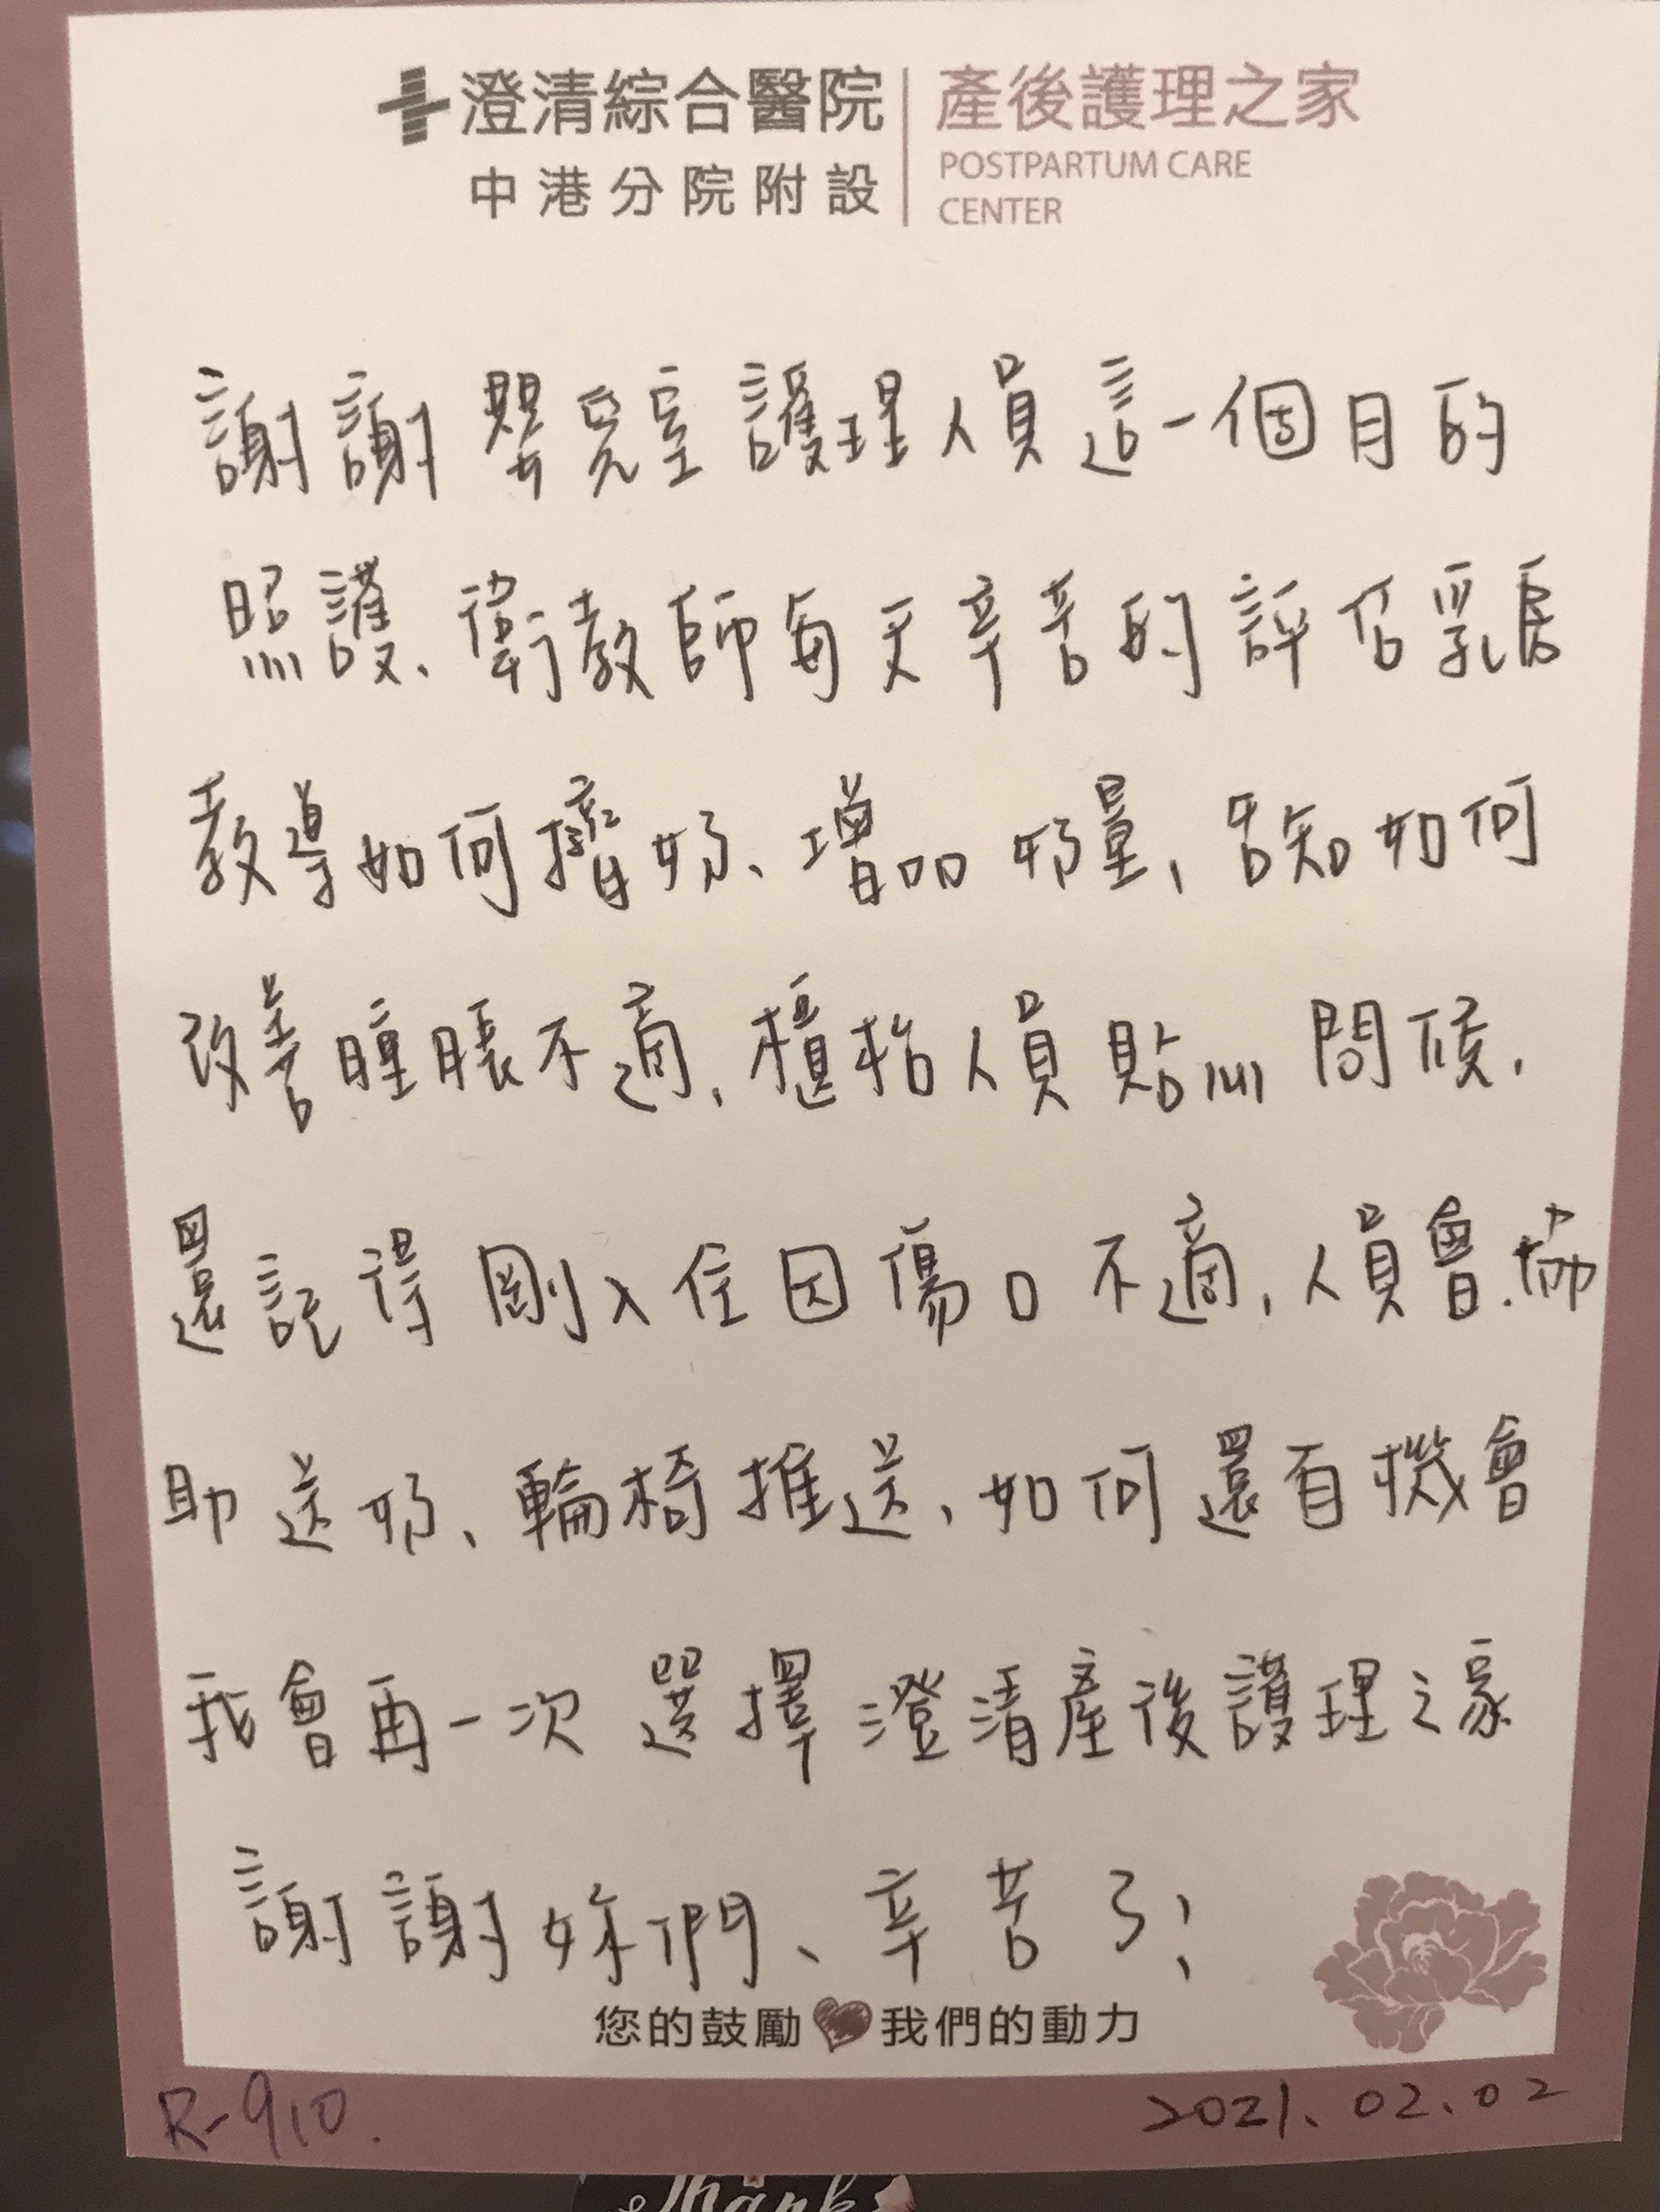 澄清綜合醫院
中港分院附設
產後護理之家
POSTPARTUM CARE
CENTER
謝謝 嬰兒室護理人員這一個月的
照護、衛教師每天辛苦的評估乳房
教導如何擠奶、增加奶量,告知如何
改善腫脹不適,櫃枱人員貼心問候,
還記得剛入住因傷口不適,人員會協
助送奶、輪椅推送,如何還有機會
我會再一次選擇澄清產後護理之家
謝謝妳們、辛苦了!
您的鼓勵 我們的動力
R-910.
2021.02.02
Thank